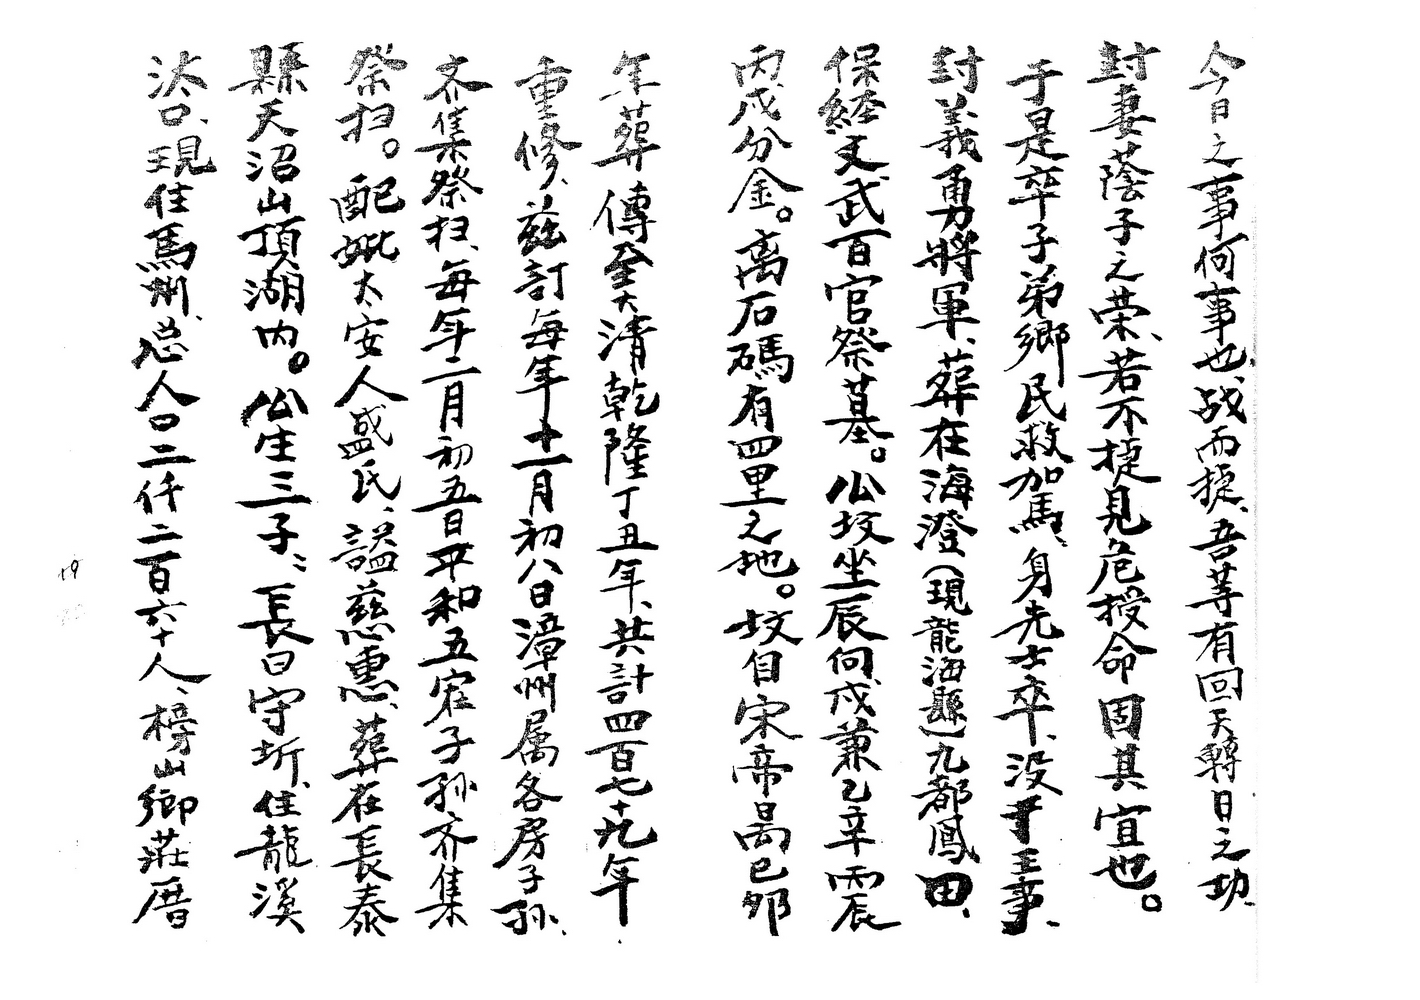 今日之事何事也、战而捷、吾等有回天轉日之功、
封妻蔭子之荣、若不捷見危授命固其宜也。
于是卒子弟鄉民救加馬、身先士卒、没于王事、
封義勇將軍、葬在海澄(現龍海縣)九都鳳田、
保經文武百官祭墓。公坟坐辰向戌兼乙辛丙辰
丙戌分金。离石碼有四里之地。坟自宋帝昺己卯
年葬傳至大清乾隆丁丑年、共計四百七十九年
重修、兹訂每年十一月初八日漳州属各房子孙、
齐集祭扫、每年二月初五日平和五寨子孙齐集
祭扫。配妣太安人盛氏、謚慈惠、葬在長泰
縣天沼山頂湖内。公生三子：長曰守圻、住龍溪
汰口、現住馬洲、总人口二仟二百六十人、榜山鄉莊厝
19